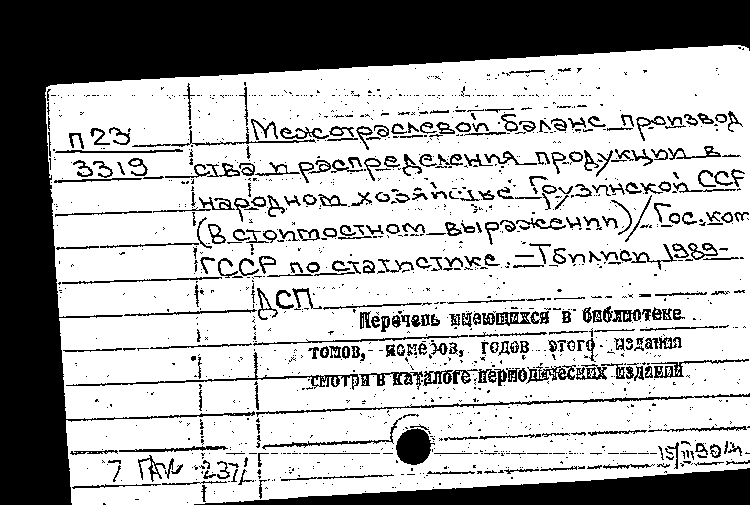 П23
3319
Межотраслевой баланс производ
ства и распределения продукции в
народном хозяйстве Грузинской ССР
(в стоимостном выражении)/Гос.ком
ГССР по статистике.-Тбилиси, 1989-
ДСП
Перечень имеющихся в библиотеке
томов, номеров, годов этого издания
смотри в каталоге периодических изданий
7 237/
15/III90